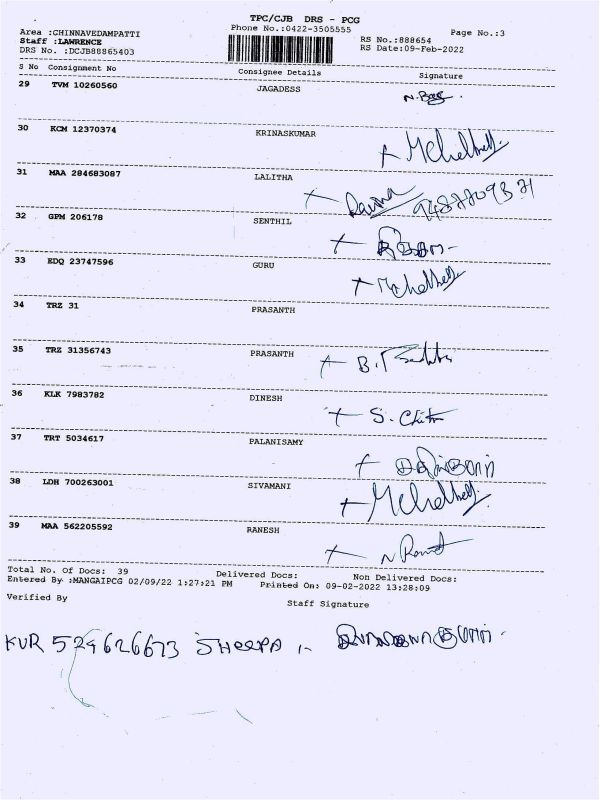 TPC/CJB DRS - PCG
Area :CHINNAVEDAMPATTI Phone No.:0422-3505555 Page No.:3
Staff :LAWRENCE RS No.:888654
DRS No. :DCJB88865403 RS Date:09-Feb-2022
S No Consignment No Consignee Details Signature
29 TVM 10260560 JAGADESS
30 KCM 12370374 KRINASKUMAR
31 MAA 284683087 LALITHA
32 GPM 206178 SENTHIL
33 EDQ 23747596 GURU
34 TRZ 31 PRASANTH
35 TRZ 31356743 PRASANTH
36 KLK 7983782 DINESH
37 TRT 5034617 PALANISAMY
38 LDH 700263001 SIVAMANI
39 MAA 562205592 RANESH
Total No. Of Docs: 39 Delivered Docs: Non Delivered Docs:
Entered By :MANGAIPCG 02/09/22 1:27:21 PM Printed On: 09-02-2022 13:28:09
Verified By Staff Signature
KUR 529626673